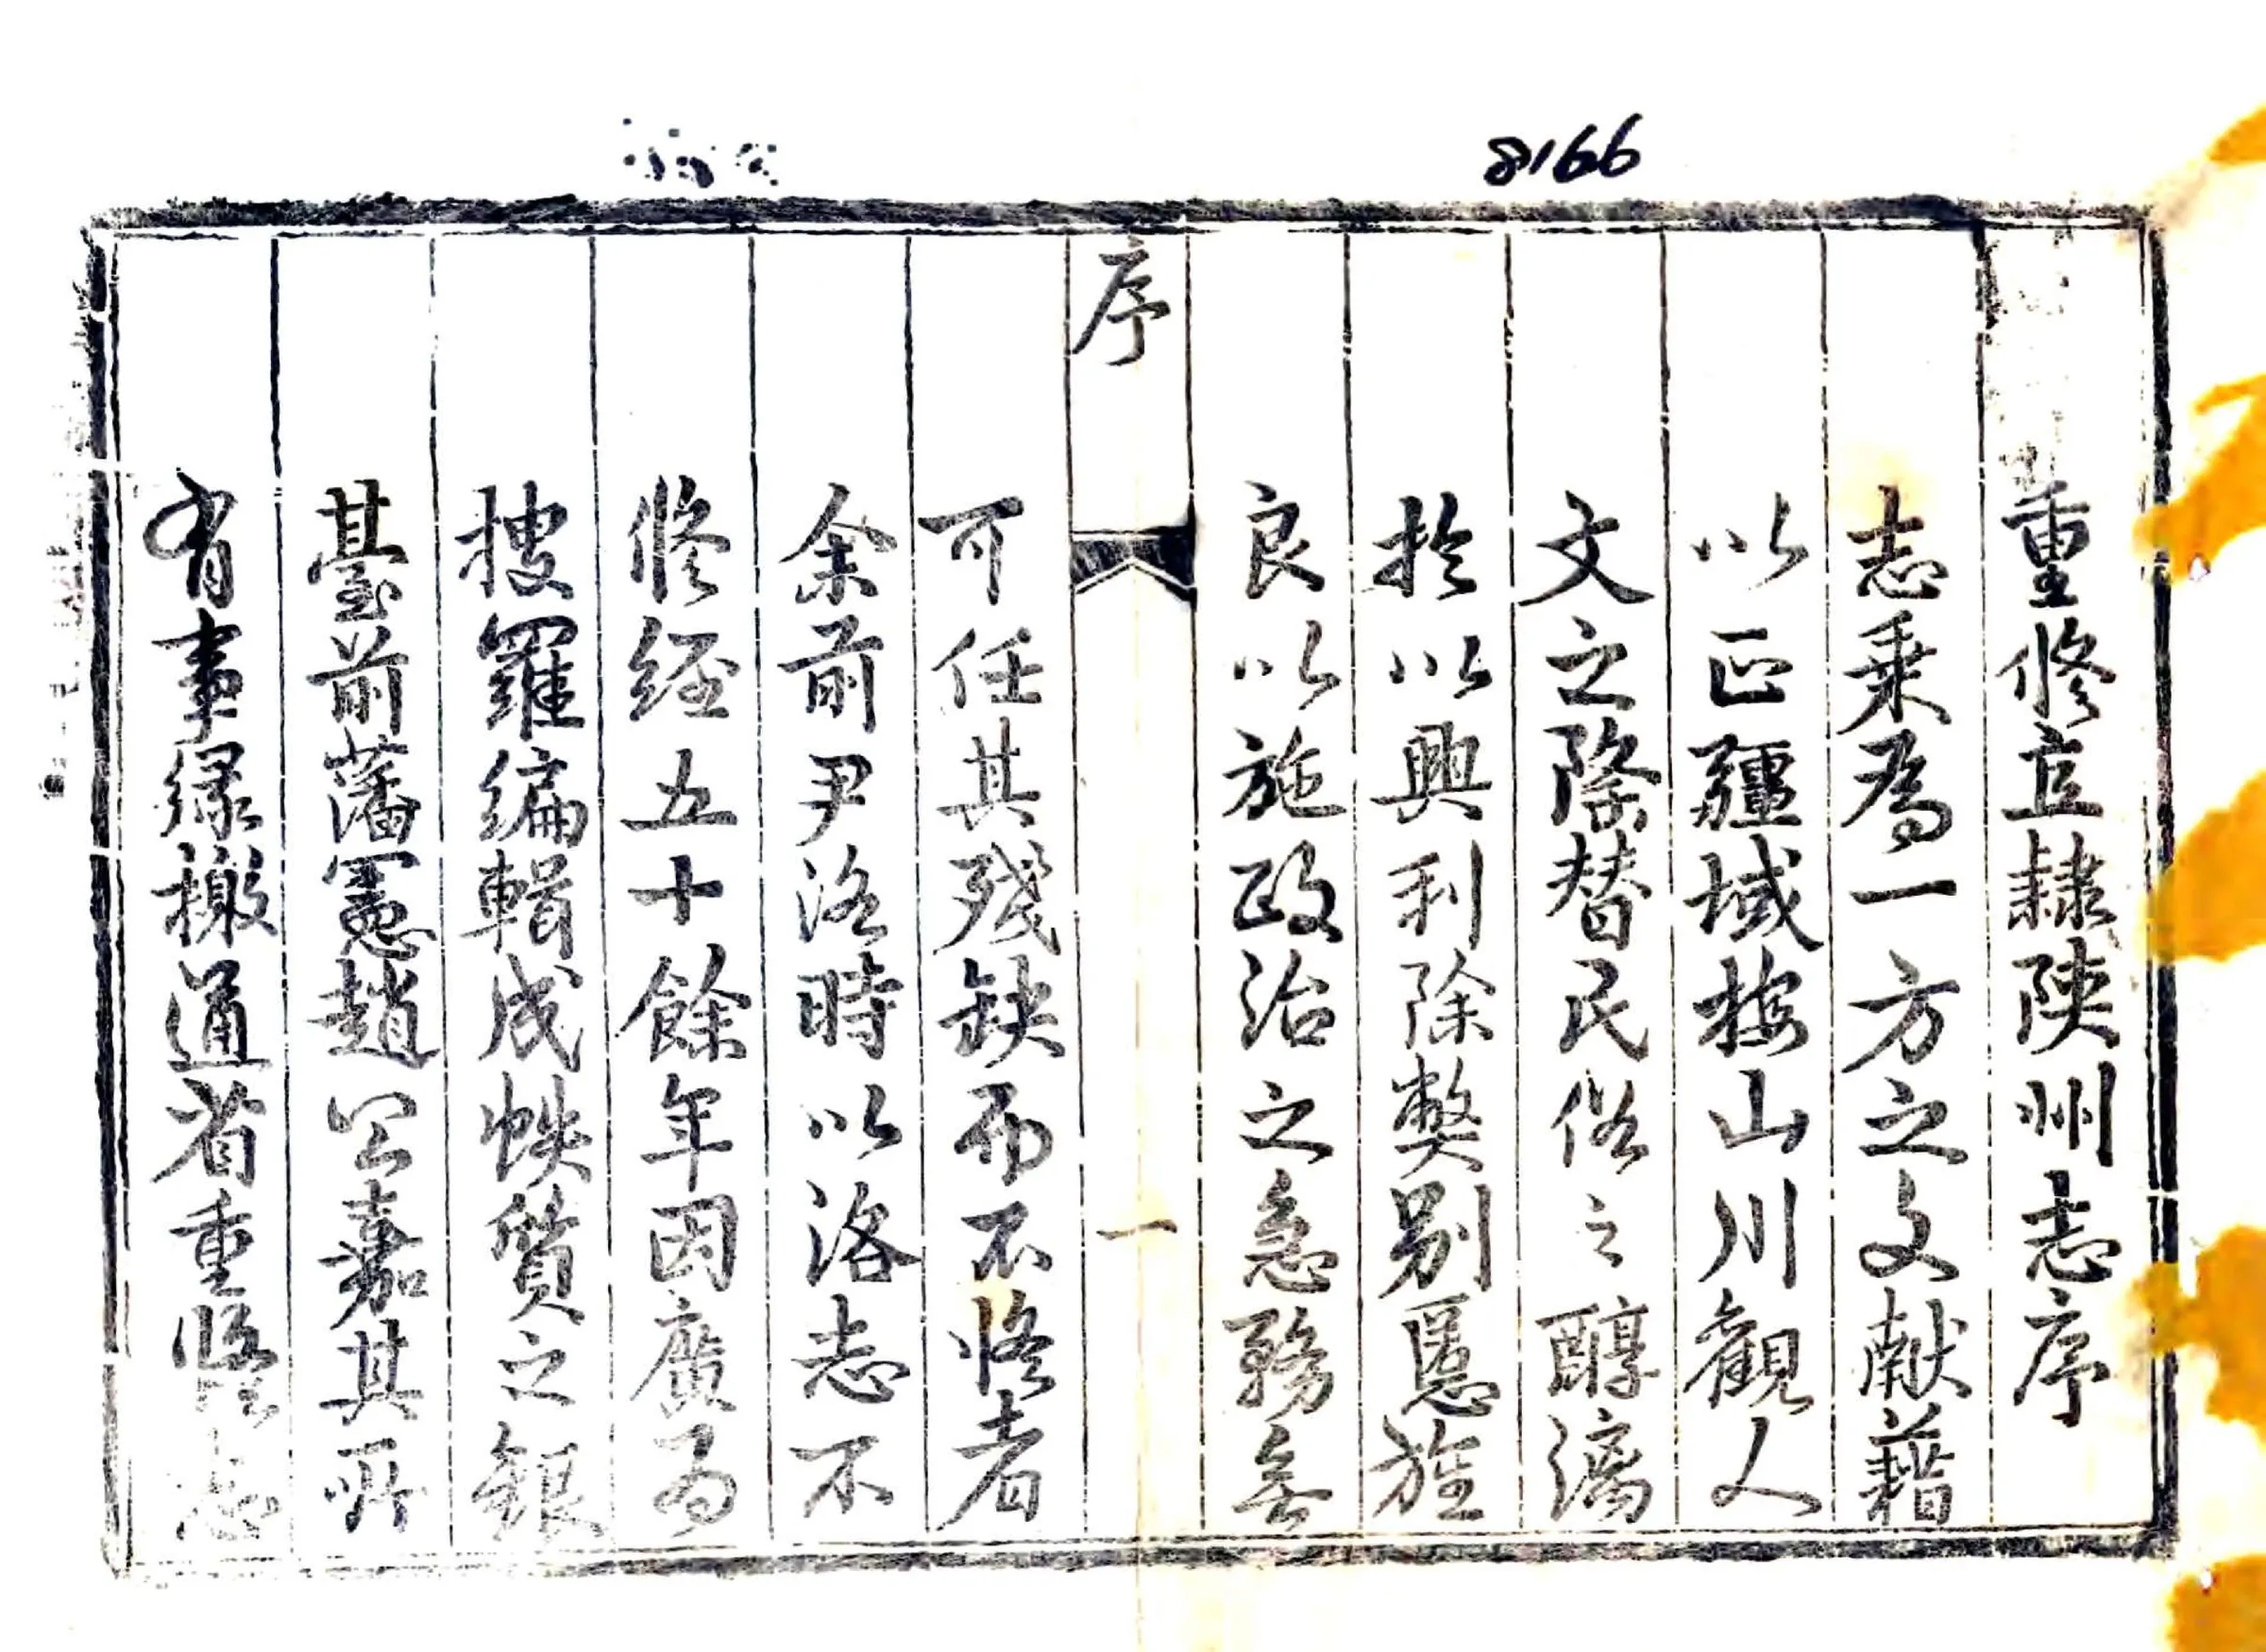 8166
重修直隸陝州志序
志乗為一方之文献藉
以正疆域按山川觀人
文之隆替民俗之醇漓
於以興利除弊别慝旌
良以施政治之急務無
序
一
可任其殘缺而不修者
余前尹洛時以洛志不
修經五十餘年因廣為
搜羅編輯成帙質之銀
臺前藩憲趙公嘉其所
有事緑檄通省重修志